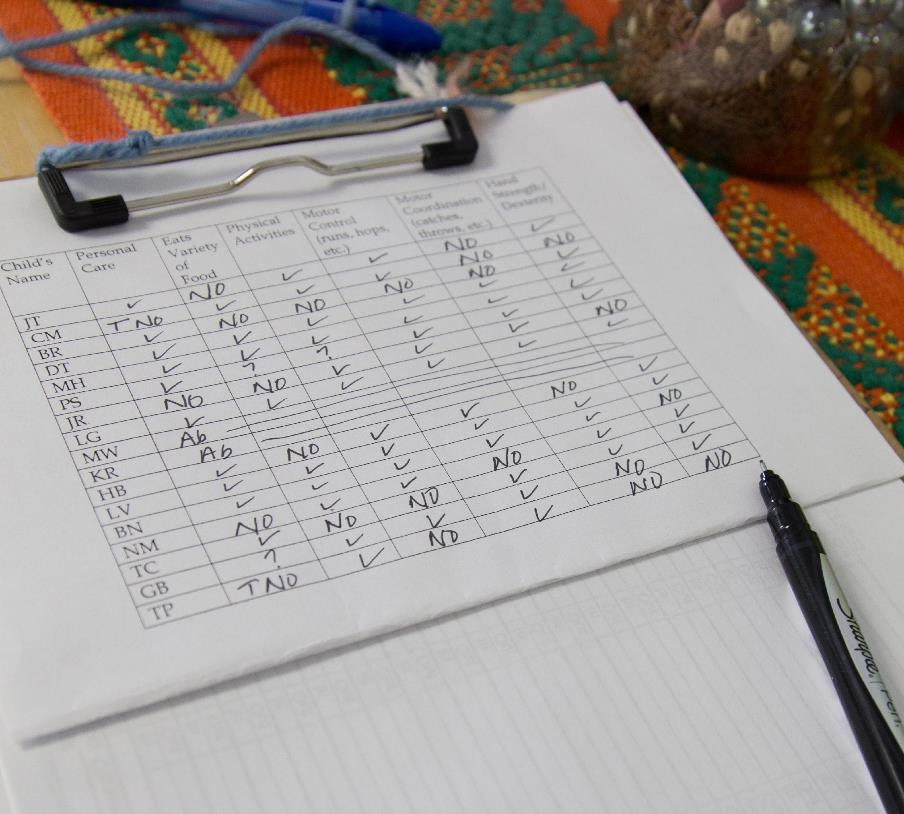 Child's Name Personal Care Eats Variety of Food Physical Activities Motor Control (runs, hops, etc.) Motor Coordination (catches, throws, etc.) Hand Strength/ Dexterity
JT ✓ NO ✓ ✓ NO ✓
CM T NO ✓ ✓ ✓ NO NO
BR ✓ NO NO NO NO ✓
DT ✓ ✓ ✓ ✓ ✓ ✓
MH ✓ ✓ ✓ ✓ ✓ ✓
PS ✓ ? ? ✓ ✓ ✓
JR NO NO ✓ ✓ ✓ NO
LG ✓ ✓ ✓ ✓ ✓ ✓
MW Ab
KR Ab
HB ✓ NO ✓ ✓ NO ✓
LV ✓ ✓ ✓ ✓ ✓ ✓
BN ✓ ✓ ✓ ✓ ✓ NO
NM NO ✓ ✓ NO ✓ ✓
TC ✓ NO NO ✓ ✓
GB ? ✓ ✓ ✓ NO
TP T NO ✓ NO ✓ NO NO
Sharpie. Pen.